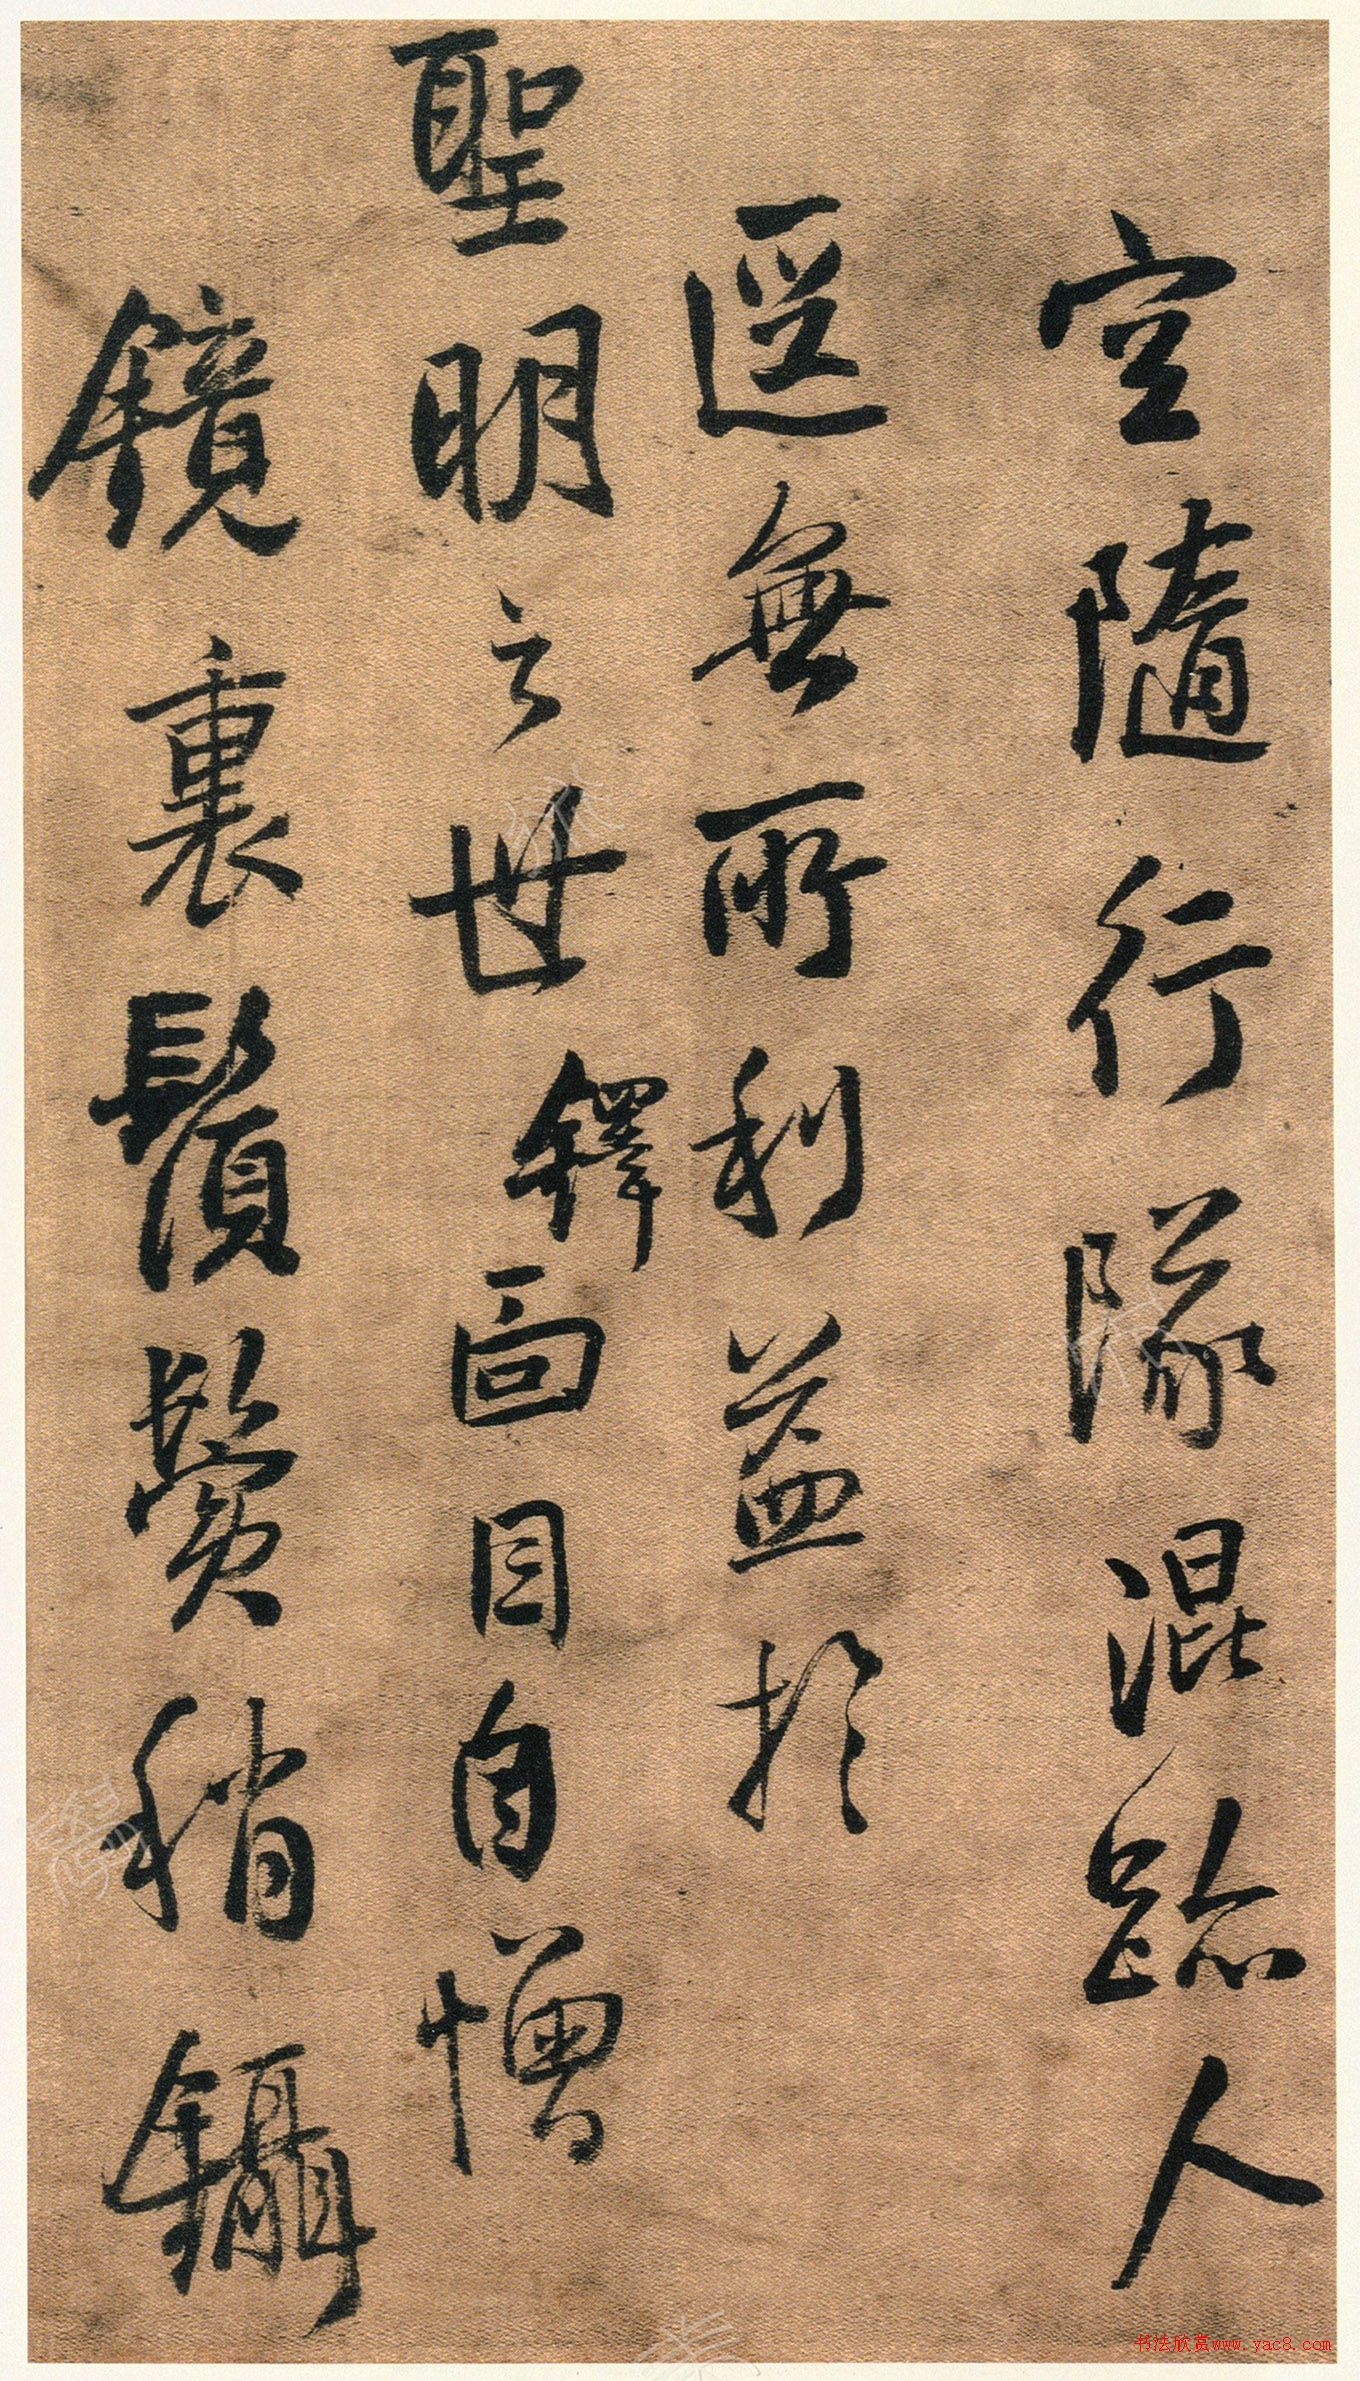 空隨行隊混跡人
區無所利益於
聖明之世鐸面目自憎
鏡裏鬚鬢稍鑷
书法欣赏www.yac8.com